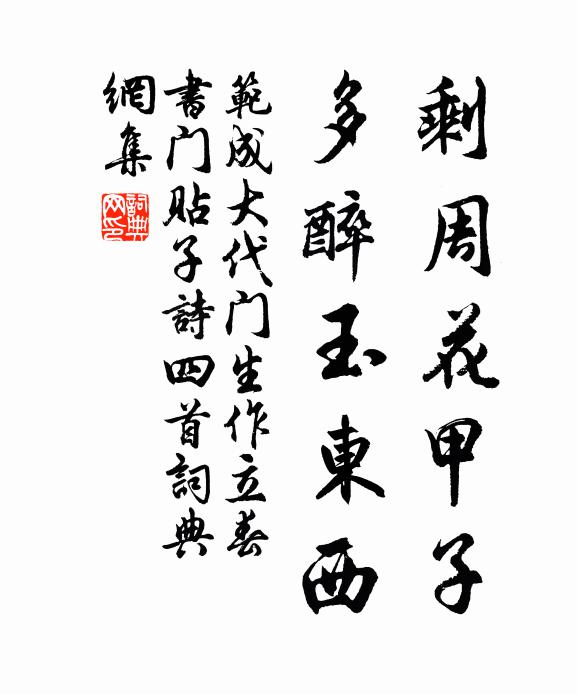 剩周花甲子
多醉玉東西
範成大代门生作立春
書门貼子詩四首詞典
網集
詞典
网印